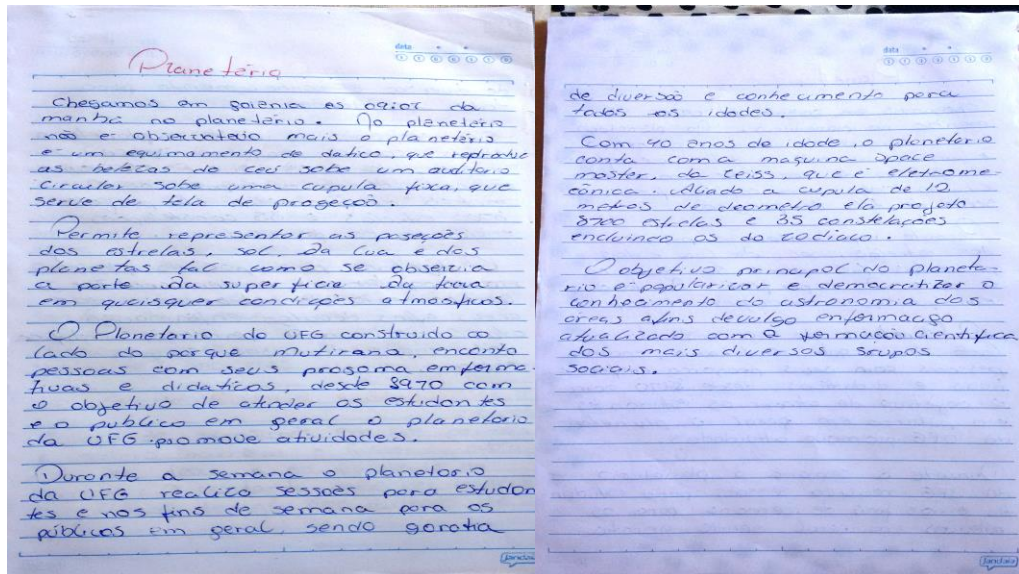 data
Planetério
Chegamos em goiênia as oqior da
manhã no planetério. No planetério
não e observatorio mais o planetério
e um equimamento de datico, que reproduz
as belezas do ceu sobe um auditório
circular sobe uma cupula fixa, que
serve de tela de progeção.
Permite representar as poseções
das estrelas, sol, da Lua e dos
planetas tal como se observia
a parte da superficie da terra
em quaisquer condições atmosficos.
O Planetario do UFG construido ao
lado do parque mutirana, enconto
pessoas com seus prosoma emforma
tivas e didaticas, desde 1970 com
o objetivo de atender os estudantes
e o publico em geral o planetario
da UFG promove atividades.
Durante a semana o planetario
da UFG realiza sessoes para estudan
tes e nos fins de semana para os
públicos em geral, sendo garatia
jandaia
data
de diversão e conhecimento para
todos os idades.
Com 40 anos de idade, o planetario
conta com a maquina space
master, da Zeiss, que é eletrome-
cânica. Aliado a cupula de 12
metros de deometro ela projeto
8700 estrelas e 35 constelações
encluindo os do zodiaco.
O objetivo principal do planeta-
rio e popularizar e democratizar o
conhecimento do astronomia dos
areas afins devulgo enformação
atualizado com a formação cientifica
dos mais diversos grupos
sociais.
jandaia